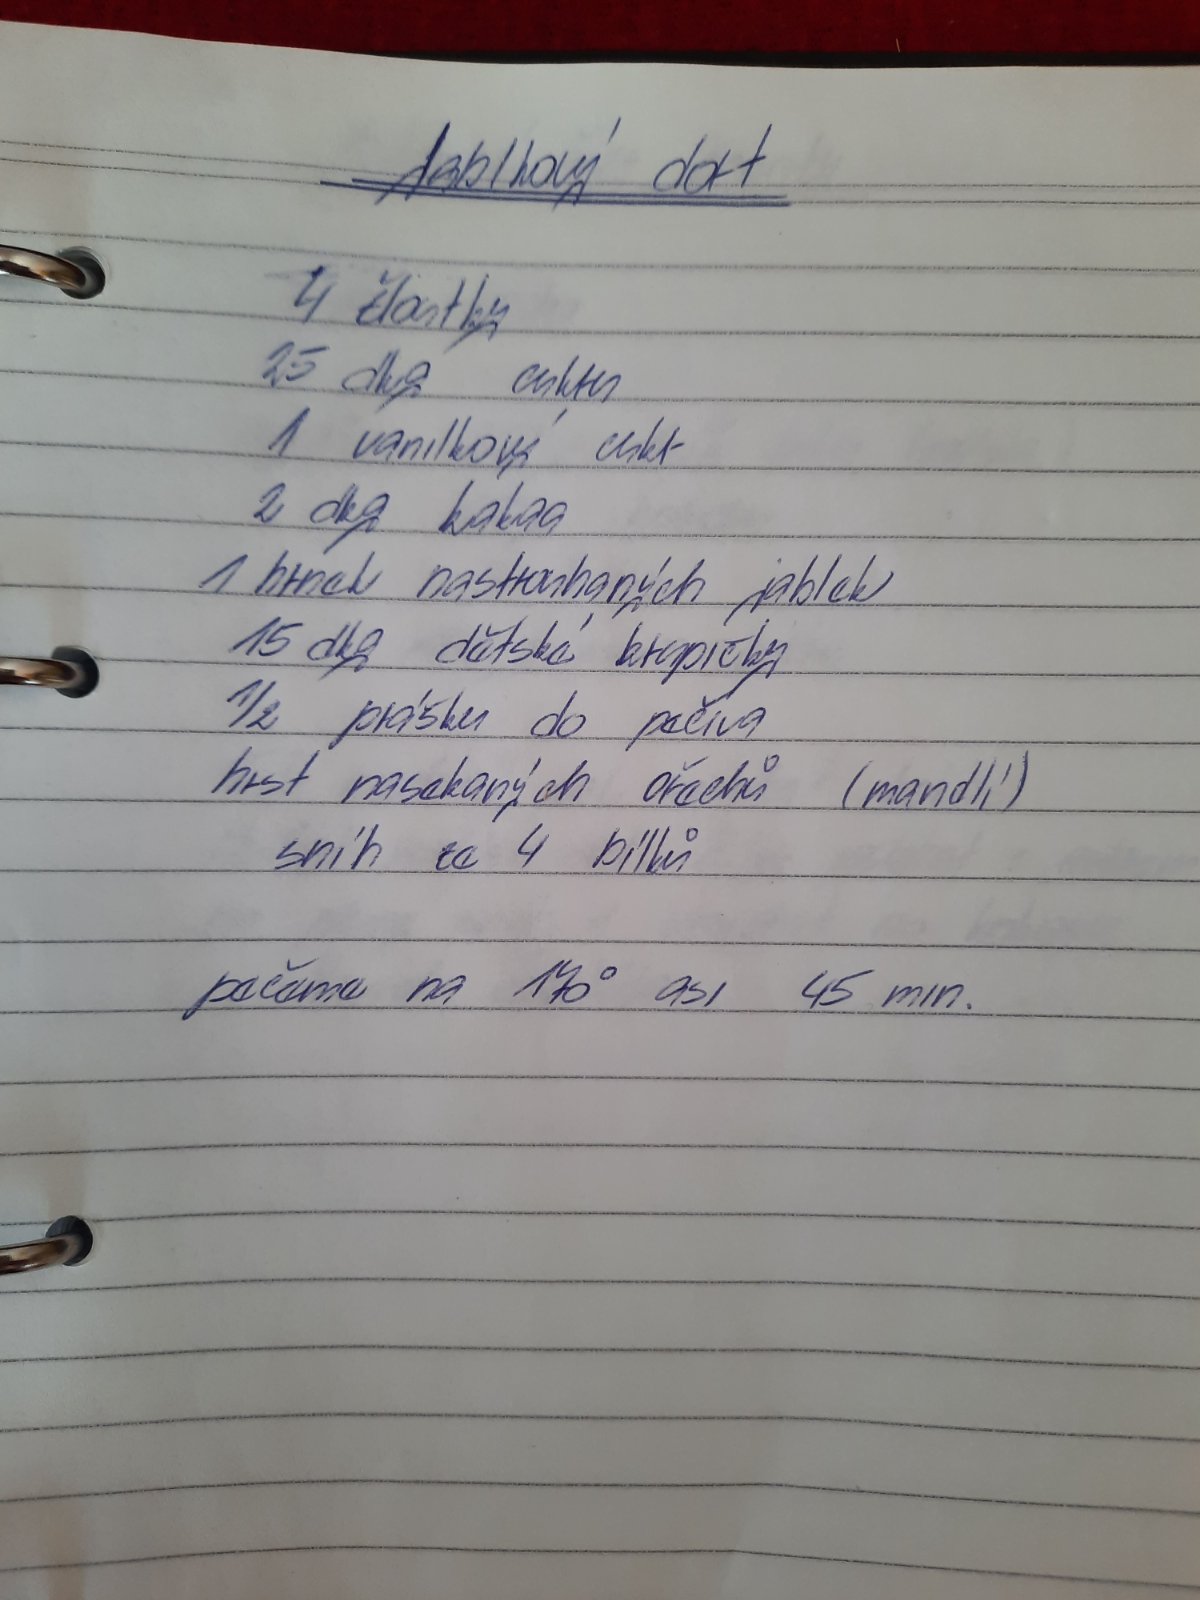 Jablkový dort
4 žloutky
25 dkg cukru
1 vanilkový cukr
2 dkg kakaa
1 hrnek nastrouhaných jablek
15 dkg dětské krupičky
1/2 prášku do pečiva
hrst nasekaných ořechů (mandlí)
sníh ze 4 bílků
pečeme na 170° asi 45 min.